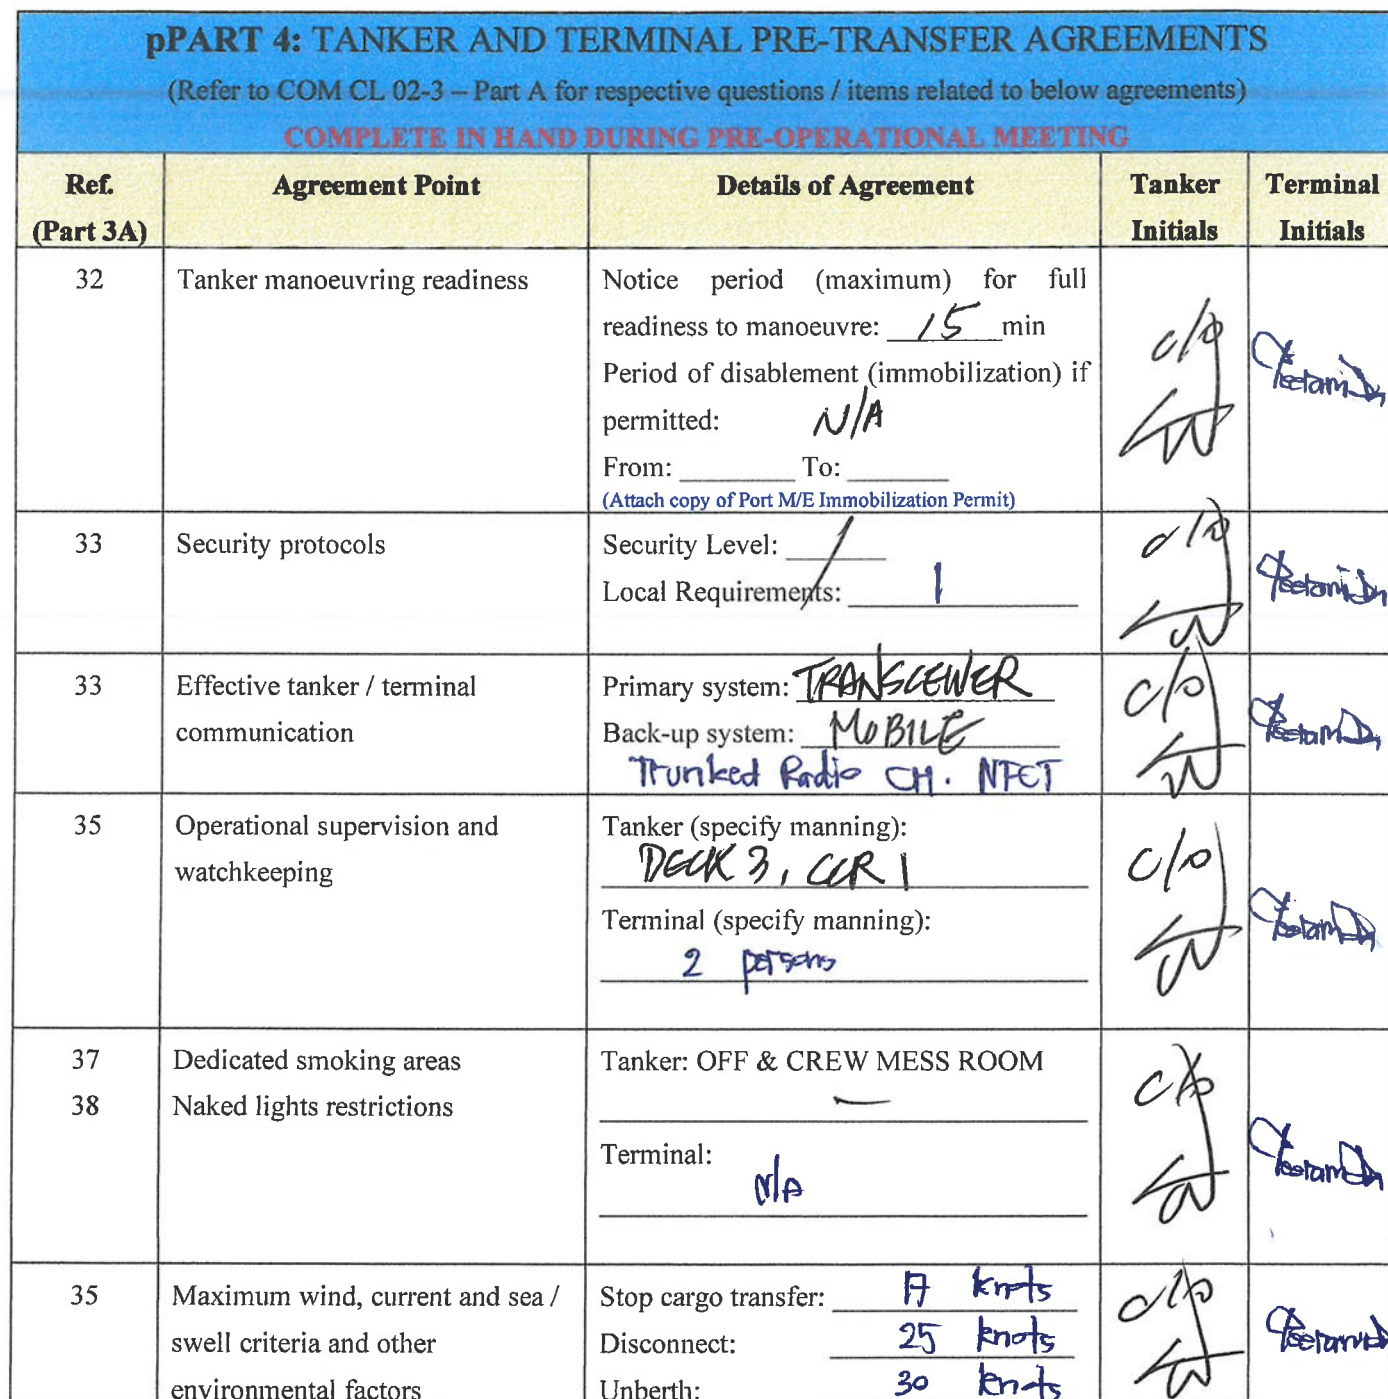 pPART 4: TANKER AND TERMINAL PRE-TRANSFER AGREEMENTS
(Refer to COM CL 02-3 – Part A for respective questions / items related to below agreements)
COMPLETE IN HAND DURING PRE-OPERATIONAL MEETING
Ref. (Part 3A) Agreement Point Details of Agreement Tanker Initials Terminal Initials
32 Tanker manoeuvring readiness Notice period (maximum) for full
readiness to manoeuvre: 15 min
Period of disablement (immobilization) if
permitted: N/A
From: To:
(Attach copy of Port M/E Immobilization Permit)
c/o
33 Security protocols Security Level: /
Local Requirements: 1
c/o
33 Effective tanker / terminal communication
Primary system: TRANSCEIVER
Back-up system: MOBILE
Trunked Radio CH. NFCT
c/o
35 Operational supervision and watchkeeping
Tanker (specify manning):
DECK 3, CCR 1
Terminal (specify manning):
2 persons
c/o
37 Dedicated smoking areas Tanker: OFF & CREW MESS ROOM
38 Naked lights restrictions —
Terminal:
N/A
c/o
35 Maximum wind, current and sea / Stop cargo transfer: 17 knots
swell criteria and other Disconnect: 25 knots
environmental factors Unberth: 30 knots
c/o